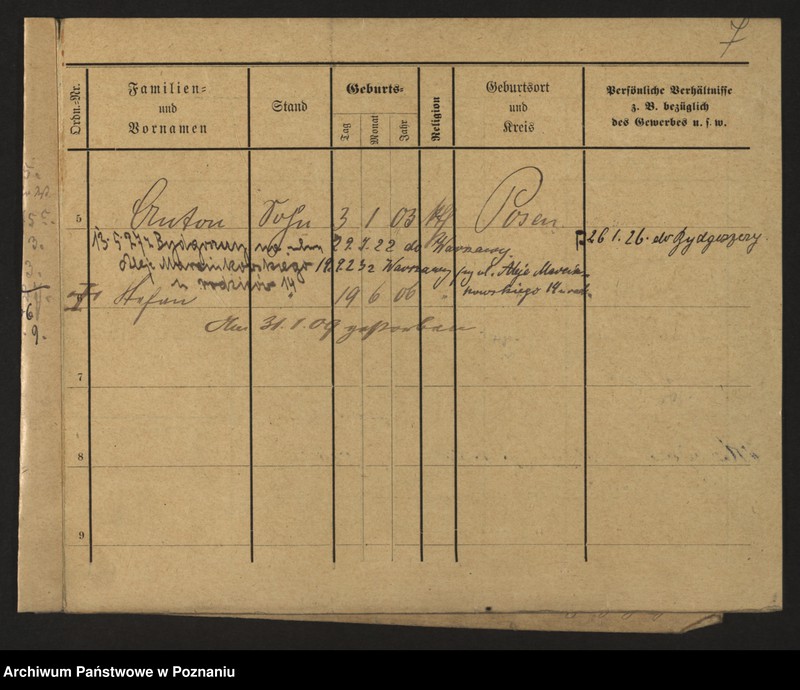 7
Ordn.-Nr.
Familien-
und
Vornamen
Stand
Geburts-
Tag
Monat
Jahr
Religion
Geburtsort
und
Kreis
Persönliche Verhältnisse
z. B. bezüglich
des Gewerbes u. s. w.
5 Anton Sohn 3 1 03 Posen
13.5.27 z Bydgoszczy 22.2.22 do Warszawy 26.1.26. do Bydgoszczy.
Aleje Marcinkowskiego 19 z Warszawy Aleje Marcin-
u rodziców 19 kowskiego 19
Stefan 19 6 06 "
Am 31.1.09 gestorben.
7
8
9
Archiwum Państwowe w Poznaniu